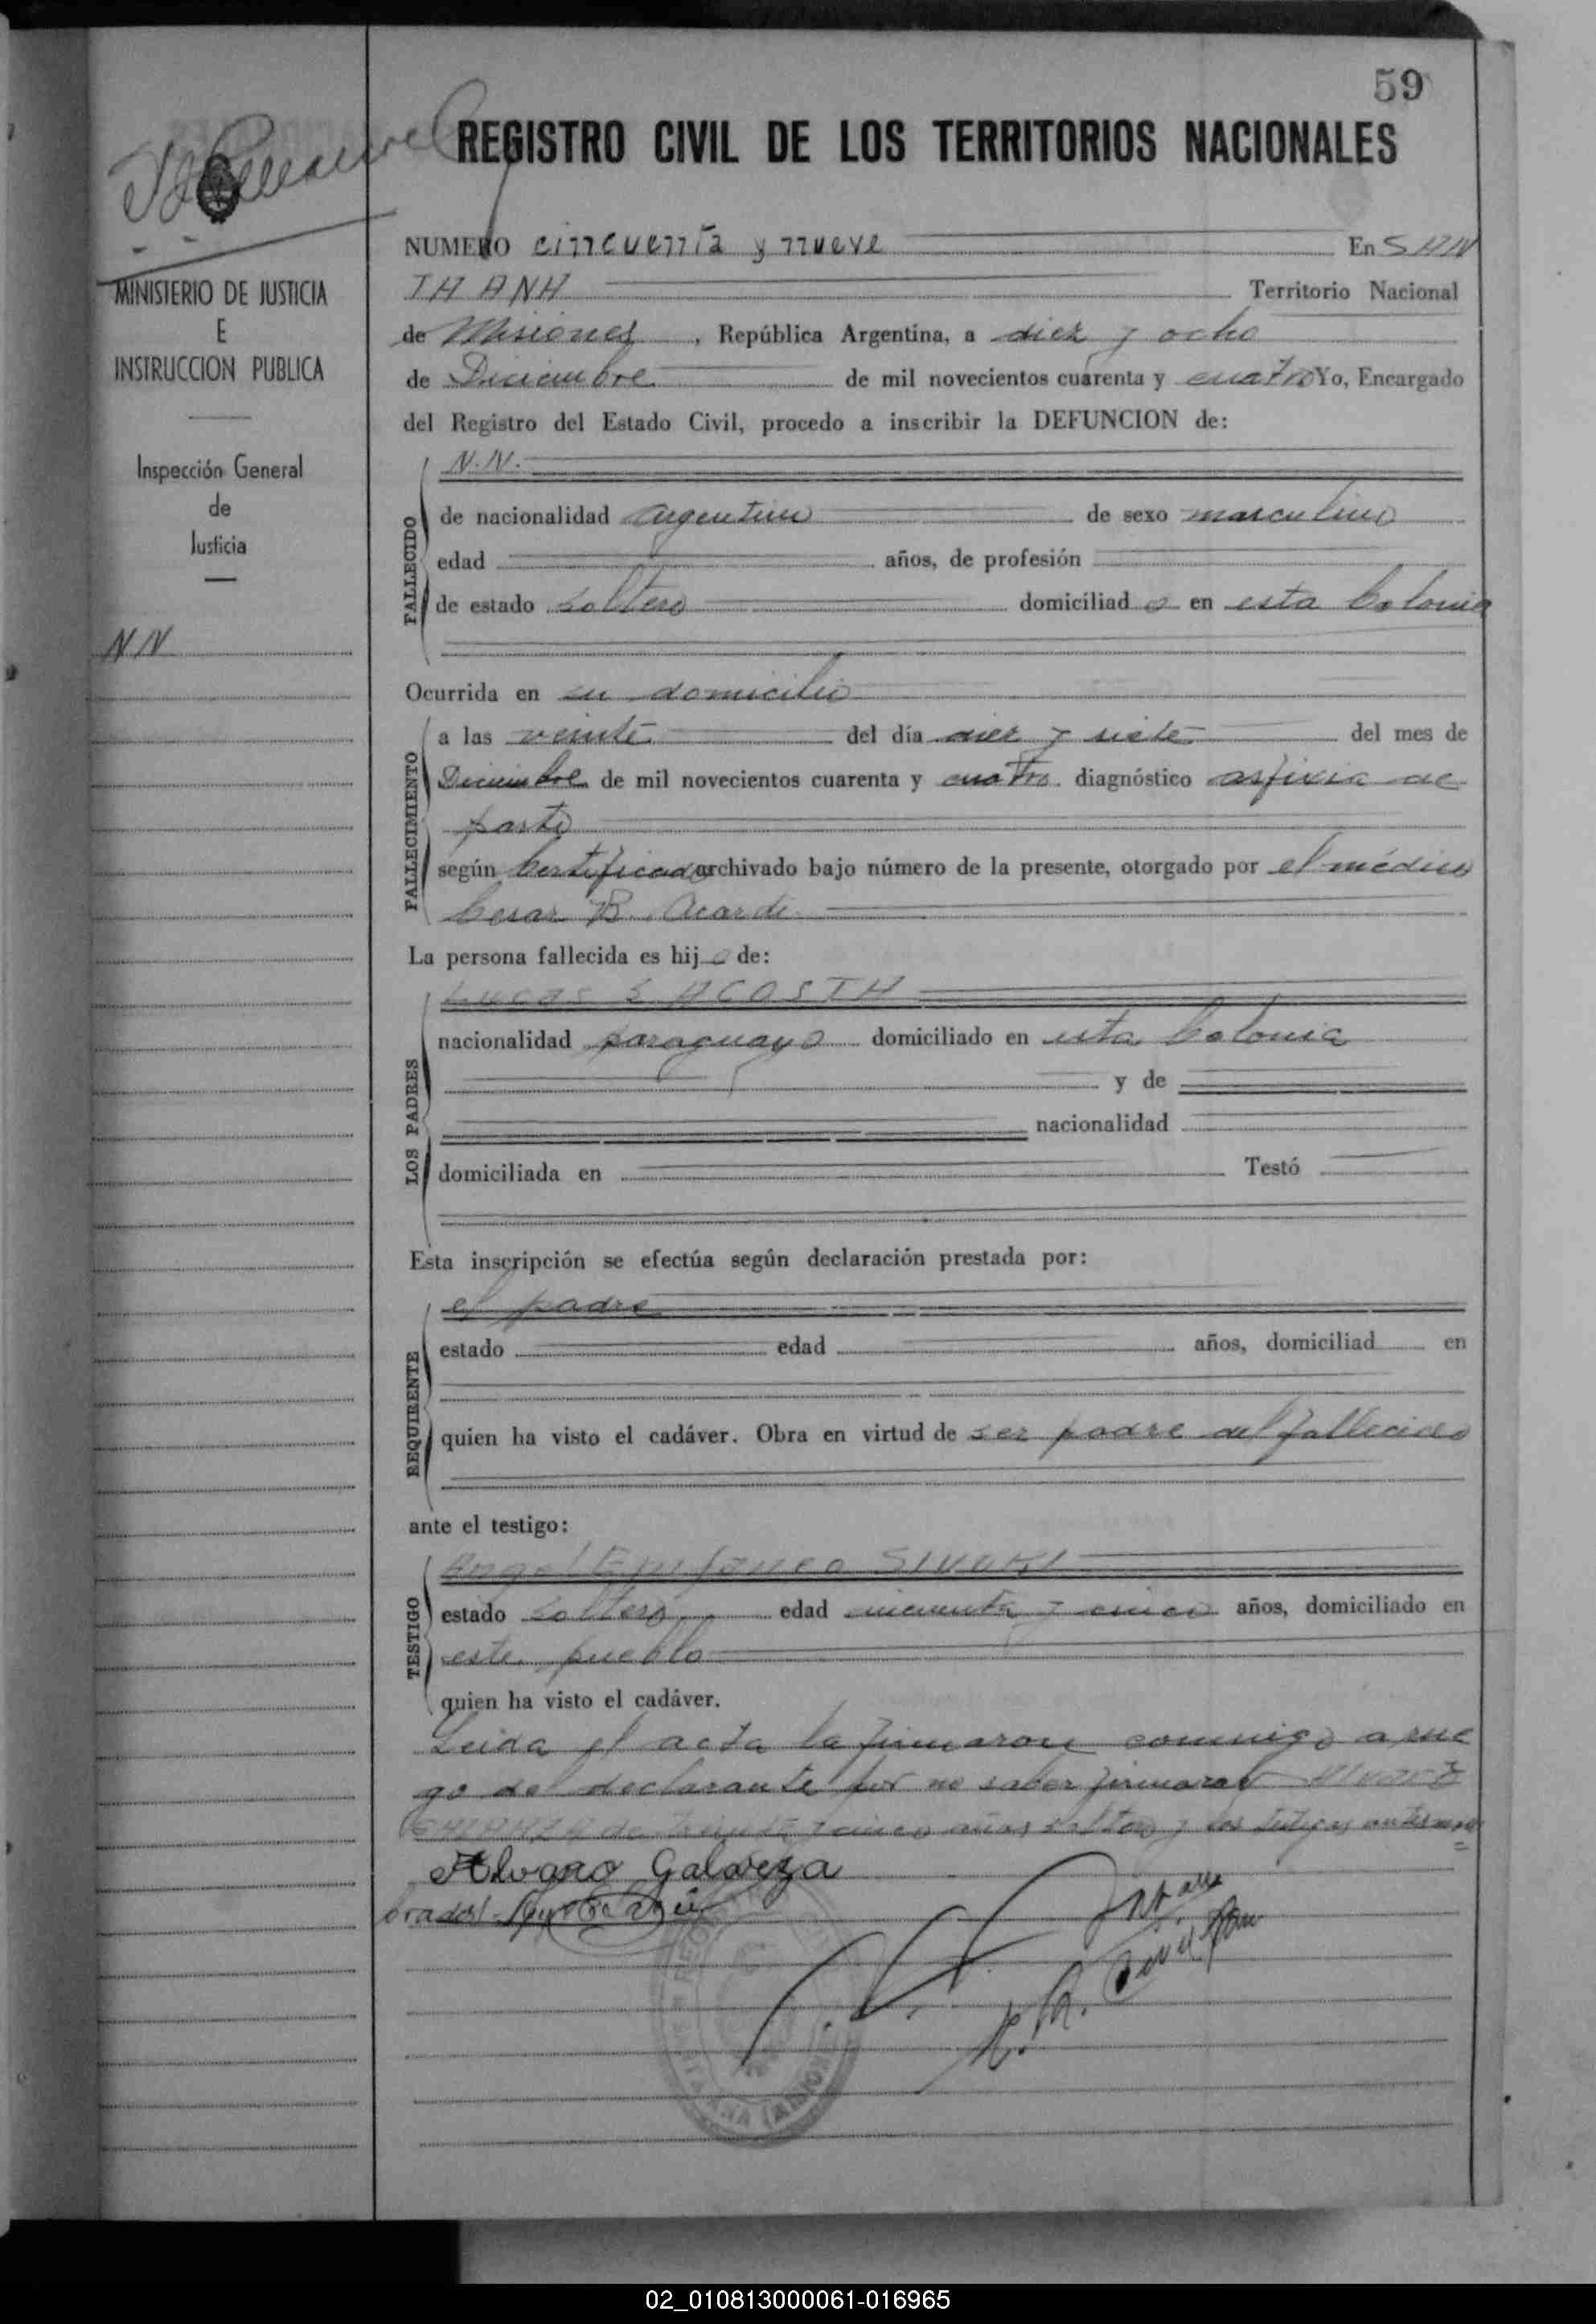 59
REGISTRO CIVIL DE LOS TERRITORIOS NACIONALES
MINISTERIO DE JUSTICIA
E
INSTRUCCION PUBLICA
Inspección General
de
Justicia
NN
NUMERO cincuenta y nueve En SAN
Territorio Nacional
de Misiones, República Argentina, a diez y ocho
de Diciembre de mil novecientos cuarenta y cuatro Yo, Encargado
del Registro del Estado Civil, procedo a inscribir la DEFUNCION de:
N.N.
FALLECIDO
de nacionalidad argentino de sexo masculino
edad años, de profesión
de estado soltero domiciliado en esta Colonia
Ocurrida en su domicilio
FALLECIMIENTO
a las veinte del día diez y siete del mes de
Diciembre de mil novecientos cuarenta y cuatro diagnóstico asfixia de
parto
según Certificado archivado bajo número de la presente, otorgado por el médico
Cesar B. Acardi
La persona fallecida es hijo de:
Lucas S ACOSTA
LOS PADRES
nacionalidad paraguayo domiciliado en esta Colonia
y de
nacionalidad
domiciliada en Testó
Esta inscripción se efectúa según declaración prestada por:
el padre
REQUIRENTE
estado edad años, domiciliad en
quien ha visto el cadáver. Obra en virtud de ser padre del fallecido
ante el testigo:
TESTIGO
estado soltero edad cincuenta y cinco años, domiciliado en
este pueblo
quien ha visto el cadáver.
Leida el acta la firmaron conmigo a rue
go del declarante por no saber firmar
de treinta y cinco años soltero y los testigos
Alvaro Galarza
02_010813000061-016965